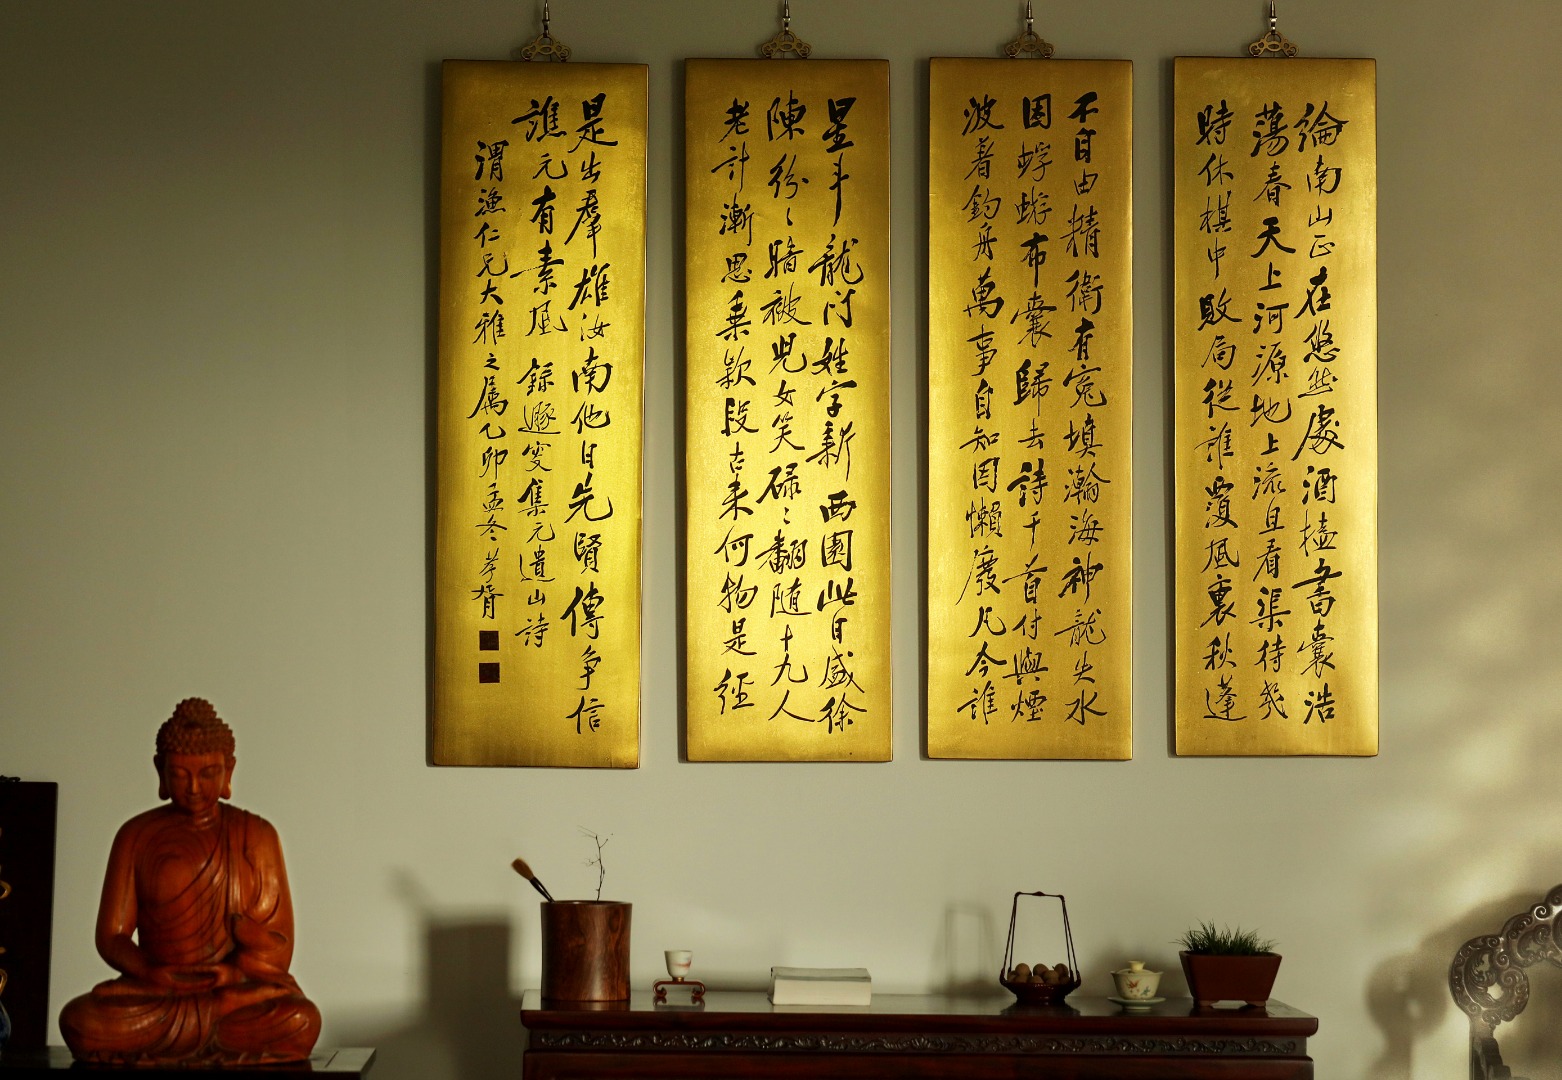 綸南山正在悠然處酒榼書囊浩
蕩春天上河源地上流且看渠待幾
時休棋中敗局從誰覆風裏秋蓬
不自由精衛有冤填瀚海神龍失水
困蜉蝣布囊歸去詩千首付與煙
波着釣舟萬事自知因懶廢凡今誰
星斗龍門姓字新西園此日盛徐
陳紛〻暗被兒女笑碌〻翻隨十九人
老計漸思乘款段古來何物是經
是出羣雄汝南他日先賢傳爭信
譙元有素風 錄遯叟集元遺山詩
渭漁仁兄大雅之屬乙卯孟冬孝胥